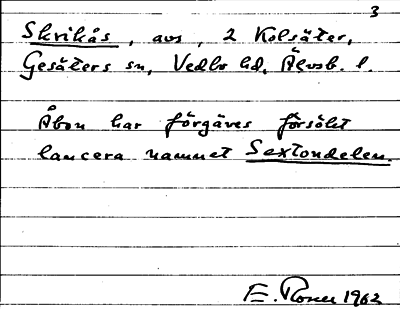 3
Skrikås, avs, 2 Kolsäter,
Gesäters sn, Vedbo hd, Älvsb. l.
Åbon har förgäves försökt
lancera namnet Sextondelen.
E. Rosell 1962